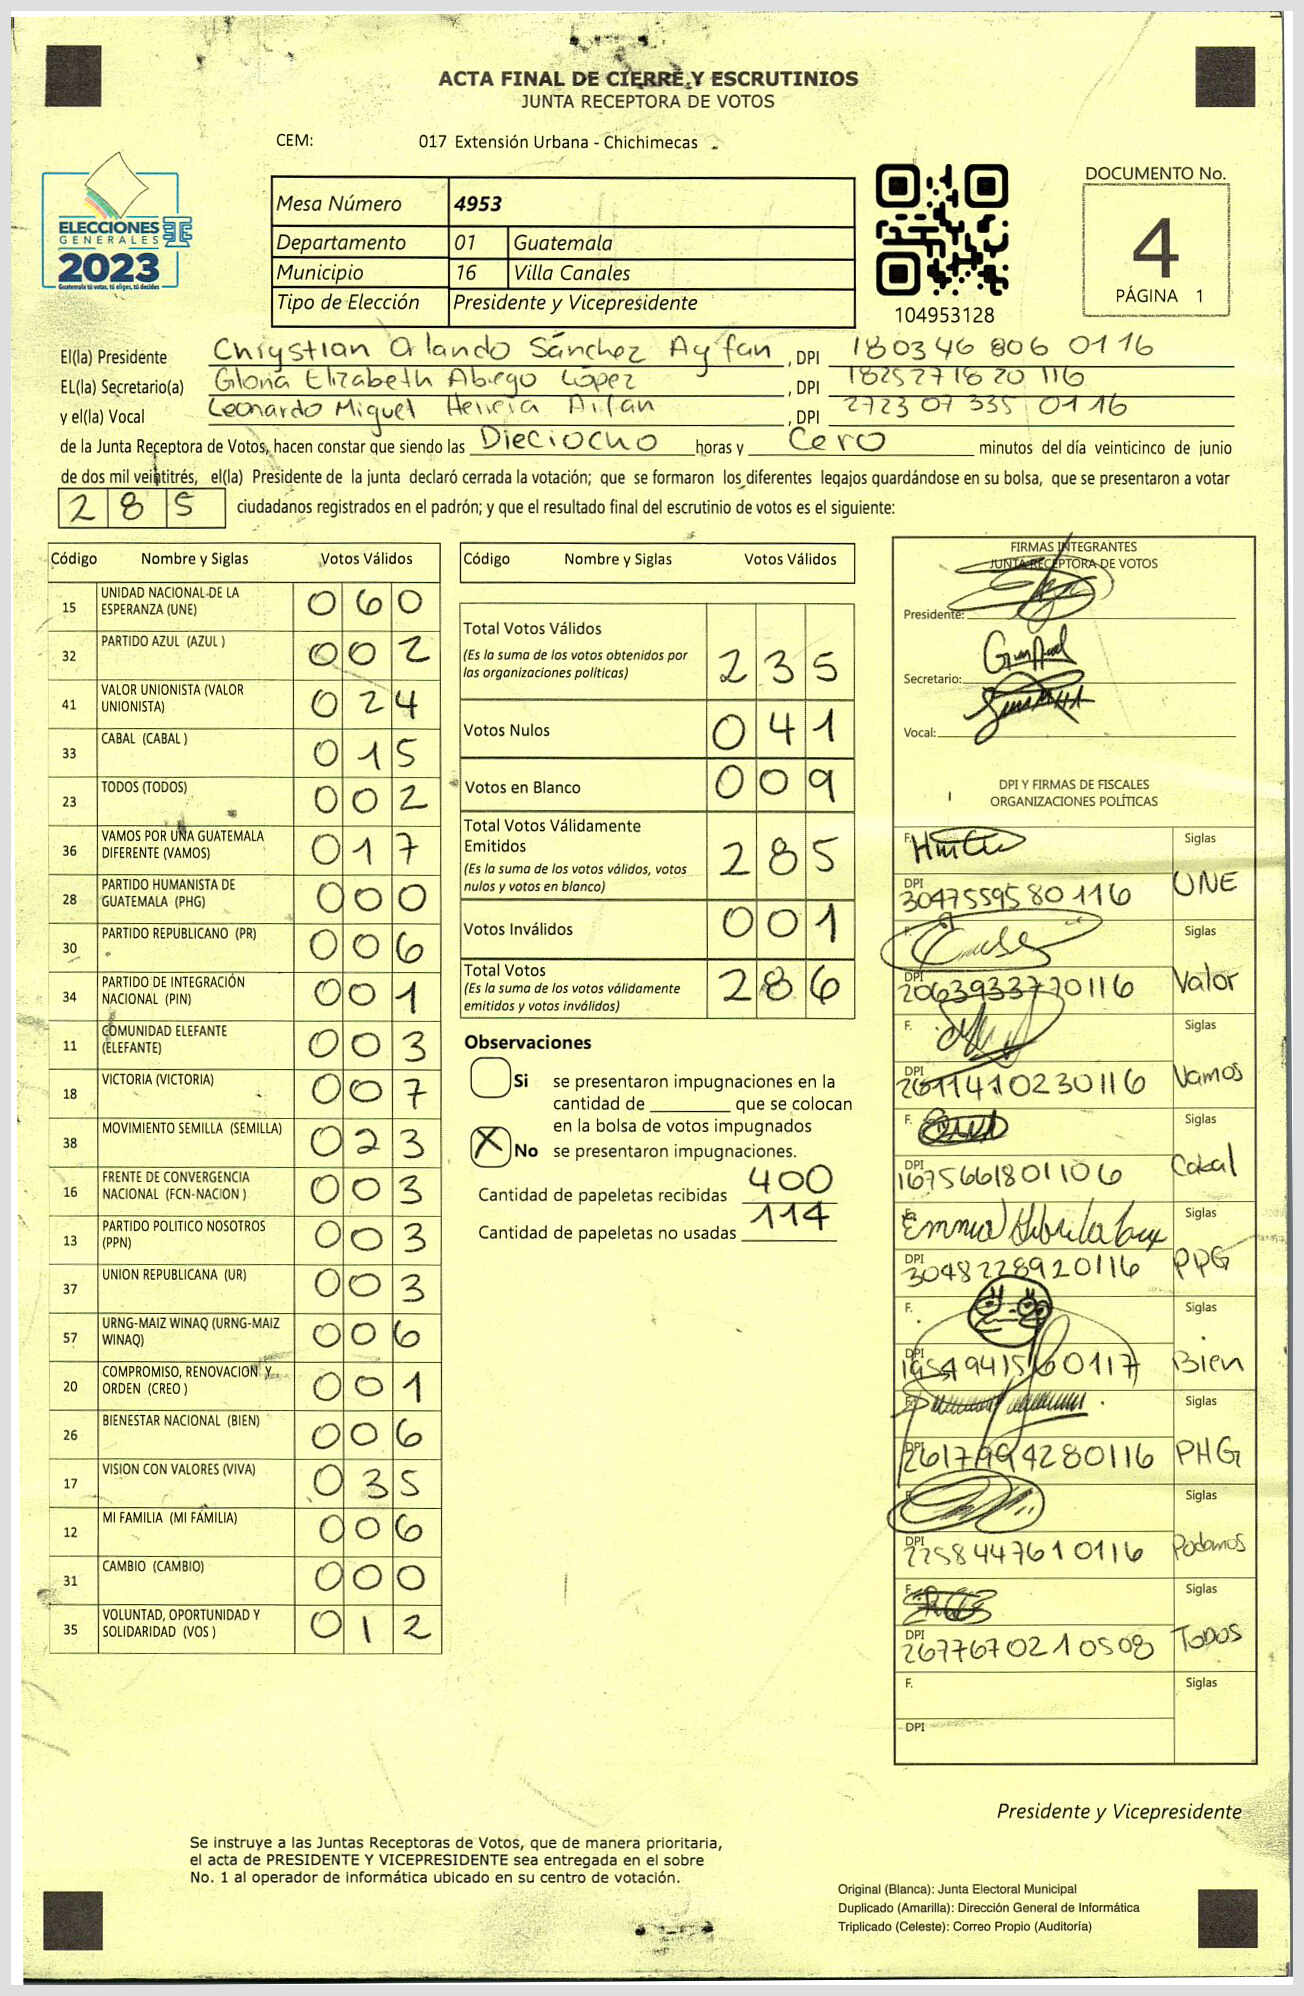 ACTA FINAL DE CIERRE Y ESCRUTINIOS
JUNTA RECEPTORA DE VOTOS
CEM: 017 Extensión Urbana - Chichimecas
ELECCIONES
GENERALES
2023
Guatemala tú votas, tú eliges, tú decides
Mesa Número 4953
Departamento 01 Guatemala
Municipio 16 Villa Canales
Tipo de Elección Presidente y Vicepresidente
104953128
DOCUMENTO No.
4
PÁGINA 1
El(la) Presidente Chrystian Orlando Sánchez Ayfan, DPI 180346 806 0116
EL(la) Secretario(a) Gloria Elizabeth Abrego López, DPI 1825271820 116
y el(la) Vocal Leonardo Miguel Herrera Arfan, DPI 2723 07 335 0116
de la Junta Receptora de Votos, hacen constar que siendo las Dieciocho horas y Cero minutos del día veinticinco de junio
de dos mil veintitrés, el(la) Presidente de la junta declaró cerrada la votación; que se formaron los diferentes legajos guardándose en su bolsa, que se presentaron a votar
285 ciudadanos registrados en el padrón; y que el resultado final del escrutinio de votos es el siguiente:
Código Nombre y Siglas Votos Válidos
15 UNIDAD NACIONAL DE LA ESPERANZA (UNE) 060
32 PARTIDO AZUL (AZUL ) 002
41 VALOR UNIONISTA (VALOR UNIONISTA) 024
33 CABAL (CABAL ) 015
23 TODOS (TODOS) 002
36 VAMOS POR UNA GUATEMALA DIFERENTE (VAMOS) 017
28 PARTIDO HUMANISTA DE GUATEMALA (PHG) 000
30 PARTIDO REPUBLICANO (PR) 006
34 PARTIDO DE INTEGRACIÓN NACIONAL (PIN) 001
11 COMUNIDAD ELEFANTE (ELEFANTE) 003
18 VICTORIA (VICTORIA) 007
38 MOVIMIENTO SEMILLA (SEMILLA) 023
16 FRENTE DE CONVERGENCIA NACIONAL (FCN-NACION ) 003
13 PARTIDO POLITICO NOSOTROS (PPN) 003
37 UNION REPUBLICANA (UR) 003
57 URNG-MAIZ WINAQ (URNG-MAIZ WINAQ) 006
20 COMPROMISO, RENOVACION Y ORDEN (CREO ) 001
26 BIENESTAR NACIONAL (BIEN) 006
17 VISION CON VALORES (VIVA) 035
12 MI FAMILIA (MI FAMILIA) 006
31 CAMBIO (CAMBIO) 000
35 VOLUNTAD, OPORTUNIDAD Y SOLIDARIDAD (VOS ) 012
Código Nombre y Siglas Votos Válidos
Total Votos Válidos 235
(Es la suma de los votos obtenidos por
las organizaciones políticas)
Votos Nulos 041
Votos en Blanco 009
Total Votos Válidamente
Emitidos 285
(Es la suma de los votos válidos, votos
nulos y votos en blanco)
Votos Inválidos 001
Total Votos 286
(Es la suma de los votos válidamente
emitidos y votos inválidos)
Observaciones
Si se presentaron impugnaciones en la
cantidad de ________ que se colocan
en la bolsa de votos impugnados
X No se presentaron impugnaciones.
Cantidad de papeletas recibidas 400
Cantidad de papeletas no usadas 114
FIRMAS INTEGRANTES
JUNTA RECEPTORA DE VOTOS
Presidente:
Secretario:
Vocal:
DPI Y FIRMAS DE FISCALES
ORGANIZACIONES POLÍTICAS
F. Siglas
DPI 3047559580116 UNE
F. Siglas
DPI 2063933770116 Valor
F. Siglas
DPI 2611410230116 Vamos
F. Siglas
DPI 1675661801106 Cabal
F. Siglas
DPI 3048228920116 PPG
F. Siglas
DPI Bien
F. Siglas
DPI 2617994280116 PHG
F. Siglas
DPI 2258447610116 Podemos
F. Siglas
DPI 2677670210508 Todos
F. Siglas
DPI
Presidente y Vicepresidente
Se instruye a las Juntas Receptoras de Votos, que de manera prioritaria,
el acta de PRESIDENTE Y VICEPRESIDENTE sea entregada en el sobre
No. 1 al operador de informática ubicado en su centro de votación.
Original (Blanca): Junta Electoral Municipal
Duplicado (Amarilla): Dirección General de Informática
Triplicado (Celeste): Correo Propio (Auditoría)